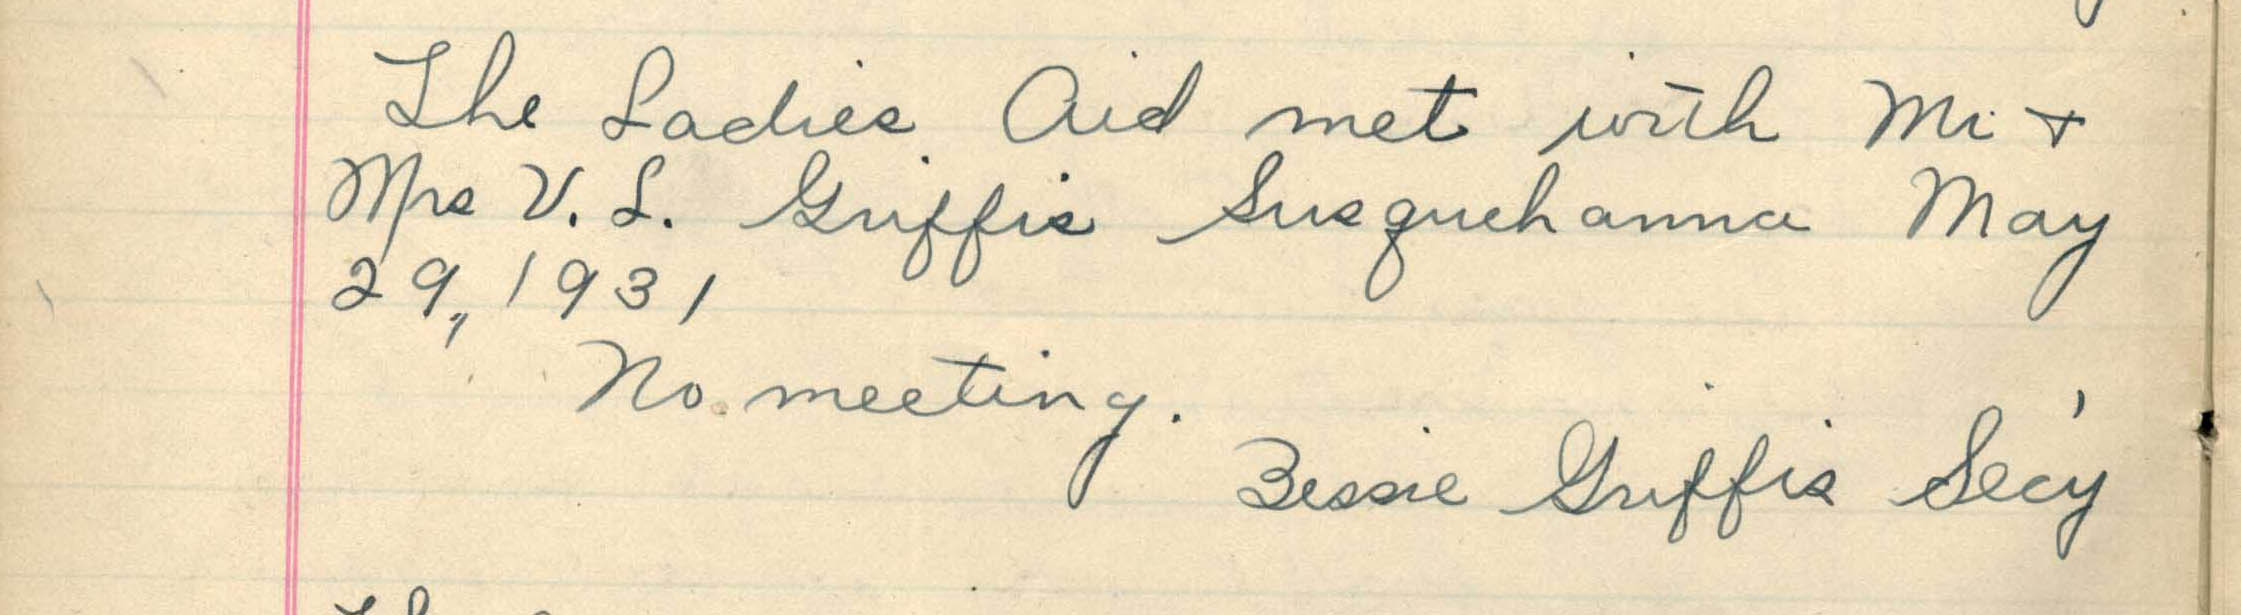 The Ladies Aid met with Mr +
Mrs V. L. Griffis Susquehanna May
29, 1931
No meeting.
Bessie Griffis Sec'y